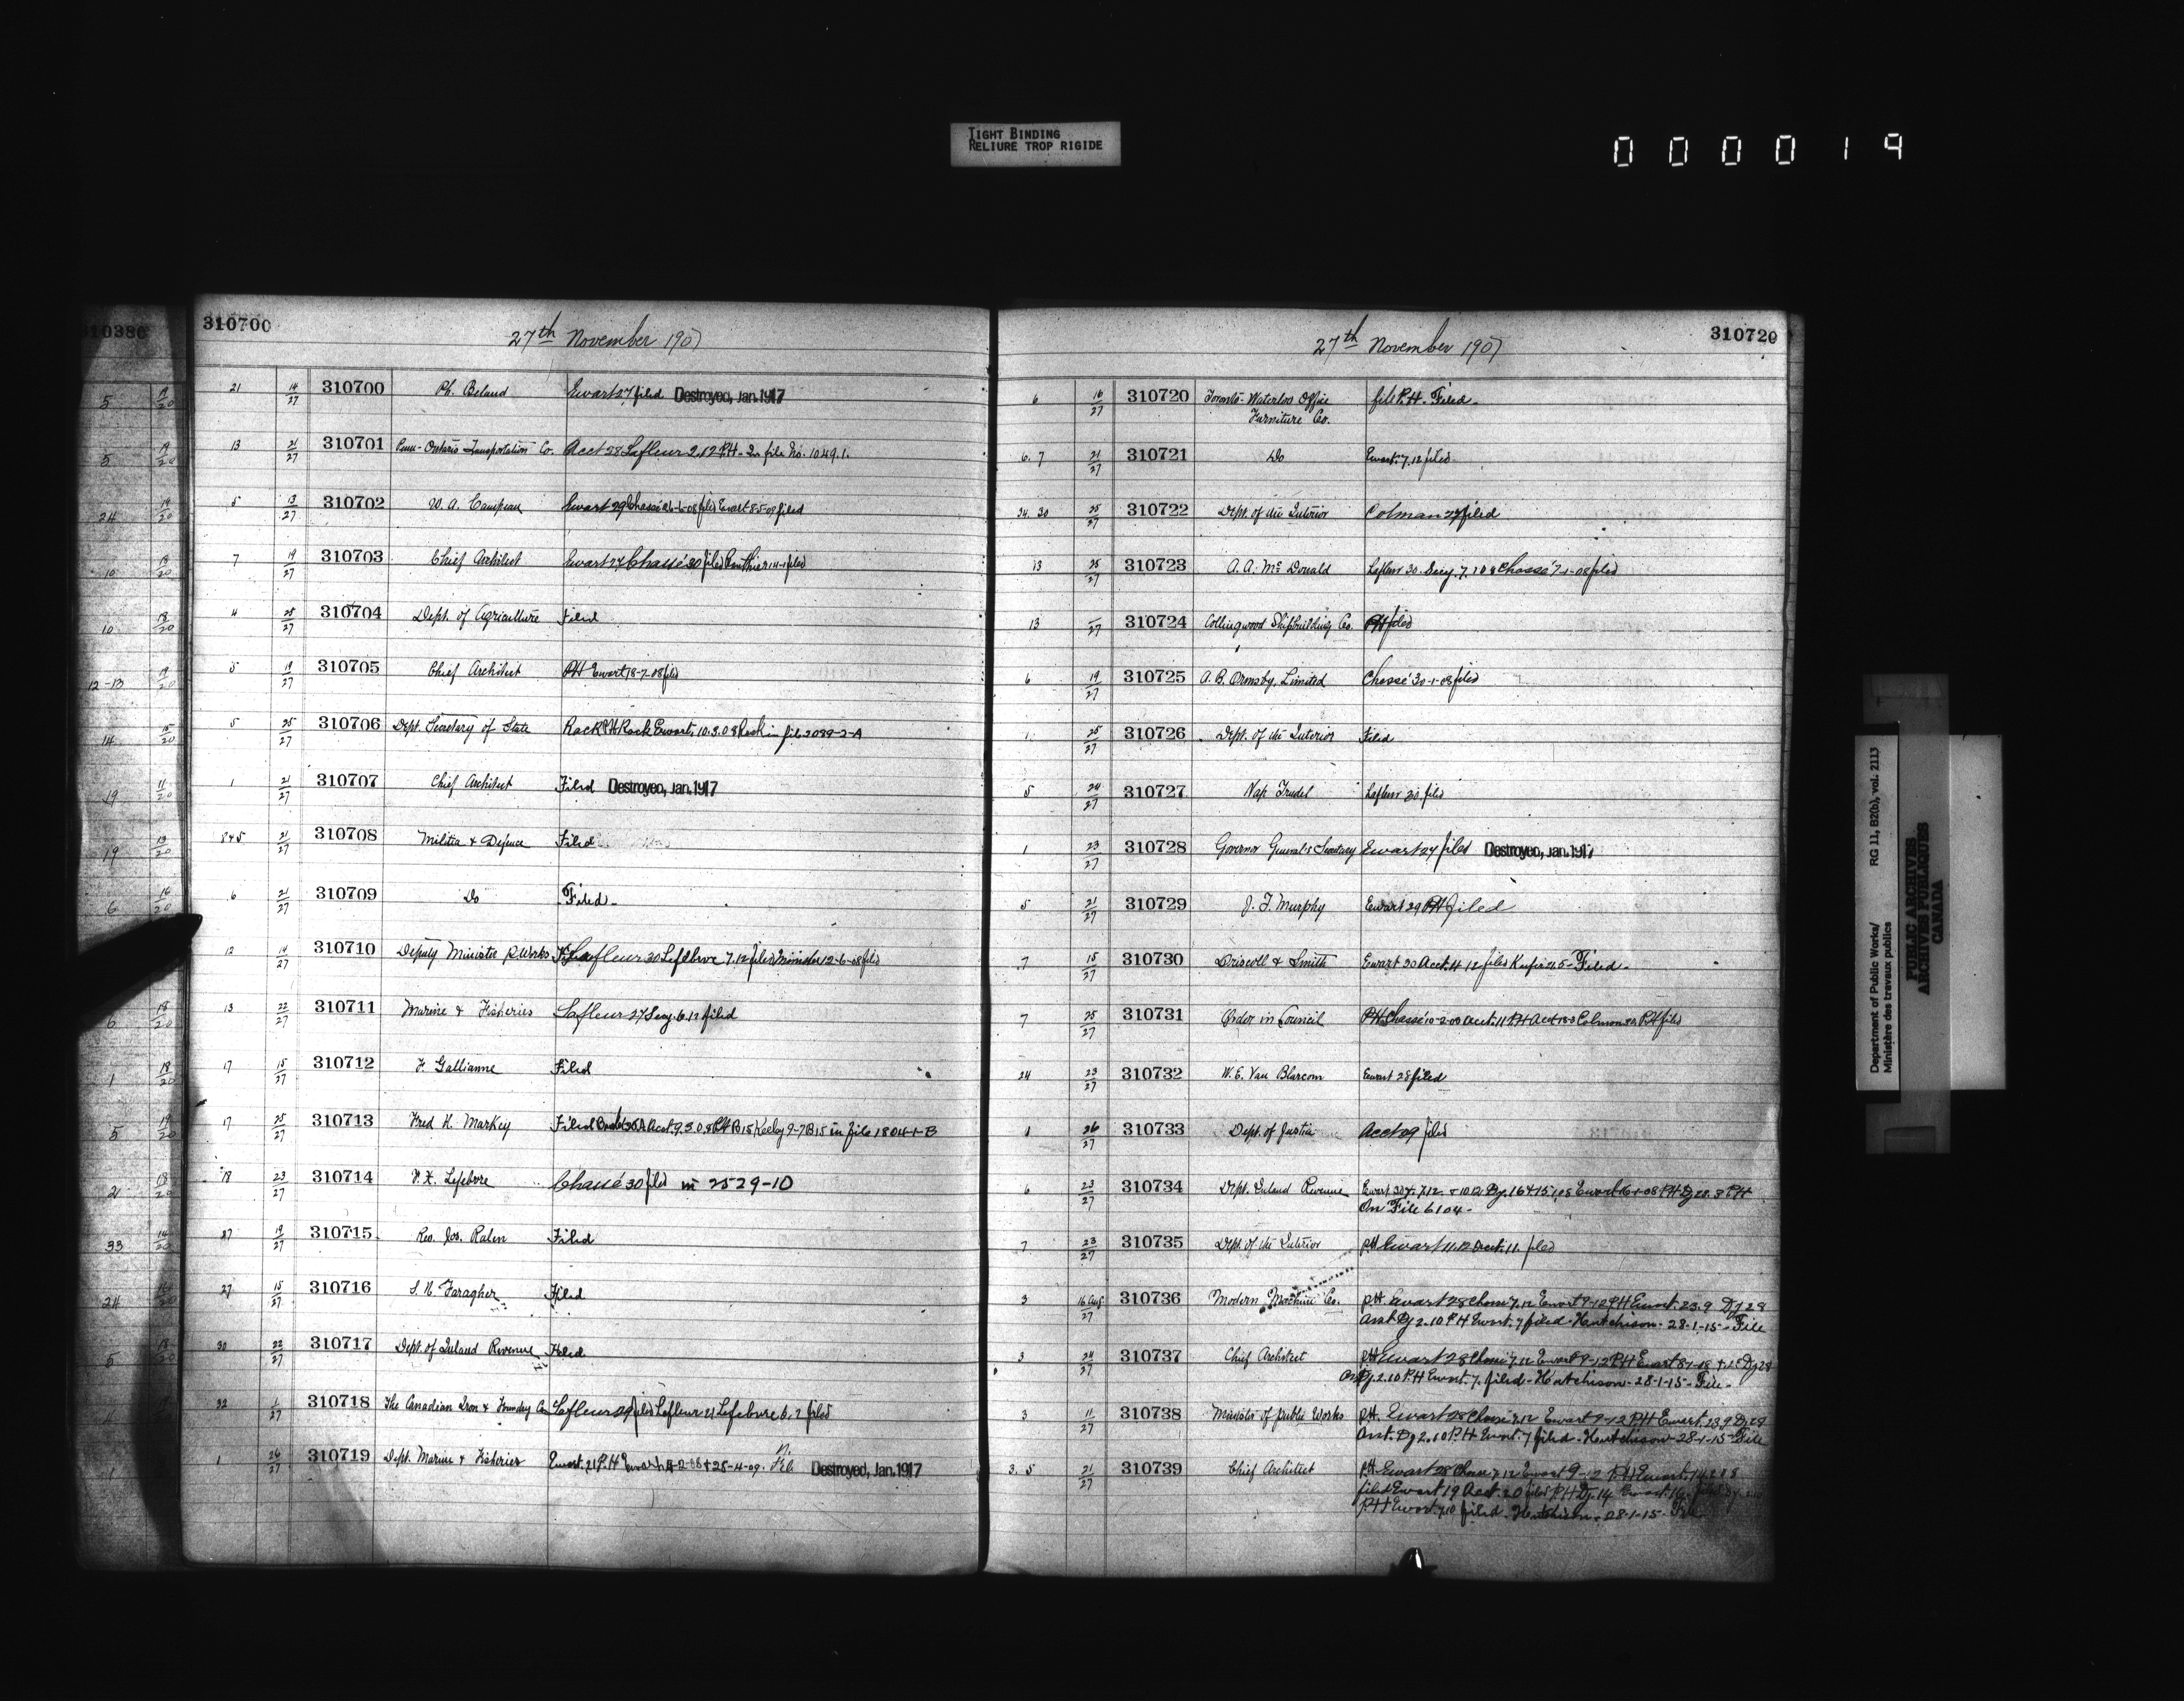 TIGHT BINDING
RELIURE TROP RIGIDE
000019
310380
310700
27th November 1907
21 14/27 310700 Ph. Beland Ewart 27 filed Destroyed, Jan. 1917
13 21/27 310701 Penn-Ontario Transportation Co. Acct 28 Lafleur 2.12 P.H. In file No. 1049.1.
5 13/27 310702 W. A. Campeau Ewart 29 Chassé 26-6-08 filed Ewart 8-5-09 filed
7 19/27 310703 Chief Architect Ewart 27 Chassé 30 filed 14-1 filed
4 25/27 310704 Dept. of Agriculture Filed
5 19/27 310705 Chief Architect PH Ewart 18-7-08 filed
5 25/27 310706 Dept. Secretary of State Rack P.H. Rack Ewart. 10.3.08 Rack in file 2089-2-A
1 21/27 310707 Chief Architect Filed Destroyed, Jan. 1917
8+5 21/27 310708 Militia & Defence Filed
6 21/27 310709 Do Filed-
12 14/27 310710 Deputy Minister P. Works Lafleur 30 Lefebvre 7.12 filed Minister 12-6-08 filed
13 22/27 310711 Marine & Fisheries Lafleur 27 Secy. 6.12 filed
17 15/27 310712 F. Gallianne Filed
17 25/27 310713 Fred H. Markey Filed Acct. 9.3.08 P.H. B15 Keeley 9-7 B15 in file 1804-1-B
18 23/27 310714 V. X. Lefebvre Chassé 30 filed in 2529-10
27 19/27 310715 Rev. Jos. Ralen Filed
27 15/27 310716 S. N. Faragher Filed
30 22/27 310717 Dept. of Inland Revenue Filed
32 1/27 310718 The Canadian Iron & Foundry Co Lafleur 29 filed Lafleur 21 Lefebvre 6.2 filed
1 26/27 310719 Dept. Marine & Fisheries Ewart. 21 P.H. Ewart -2-08 + 28-4-09. Destroyed, Jan. 1917
27th November 1907
310720
6 16/27 310720 Toronto-Waterloo Office file P.H. Filed-
Furniture Co.
6. 7 21/27 310721 Do Ewart. 7.12 filed
24. 30 25/27 310722 Dept. of the Interior Colman 27 filed
13 25/27 310723 A. A. McDonald Lafleur 30. Secy. 7.1 08 Chassé 7-1-08 filed
13 /27 310724 Collingwood Shipbuilding Co. PH filed
6 19/27 310725 A. B. Ormsby, Limited Chassé 30-1-08 filed
1 25/27 310726 Dept. of the Interior Filed
5 24/27 310727 Nap Trudel Lafleur 30 filed
1 23/27 310728 Governor General's Secretary Ewart 27 filed Destroyed, Jan. 1917
5 21/27 310729 J. F. Murphy Ewart 29 PH filed
7 15/27 310730 Driscoll & Smith Ewart 30 Acct. 4 12 filed - Filed-
7 25/27 310731 Order in Council P.H. Chassé 10-2-08 acct. 11 P.H. Acct Colman P.H. filed
24 23/27 310732 W. E. Van Blarcom Ewart 28 filed
1 26/27 310733 Dept. of Justice Acct 29 filed
6 23/27 310734 Dept. Inland Revenue Ewart 30 7.12 Ewart P.H. Dj 28. P.H.
On File 6104-
7 23/27 310735 Dept. of the Interior P.H. Ewart 11.12 Acct. 11. filed
3 16 Aug/27 310736 Modern Machine Co. P.H. Ewart 28 Chassé 7.12 Ewart 9-12 P.H. Ewart. 23.9 Dj 28
Asst. Dj 2.10 P.H. Ewart. 7 filed-Hutchison-28-1-15-File
3 24/27 310737 Chief Architect P.H. Ewart 28 Chassé 7.12 Ewart 9-12 P.H. Ewart Dj 28
Asst Dj 2.10 P.H. Ewart. 7. filed-Hutchison-28-1-15-File-
3 11/27 310738 Minister of Public Works P.H. Ewart 28 Chassé 7.12 Ewart 9-12 P.H. Ewart. 23.9 Dj 28
Asst. Dj 2.10 P.H. Ewart. 7 filed-Hutchison-28-1-15-File
3. 5 21/27 310739 Chief Architect P.H. Ewart 28 Chassé 7.12 Ewart 9-12 P.H. Ewart.
filed Ewart 19 Acct. 20 filed P.H. Dj. 14 Ewart. 16
P.H. Ewart. 7.10 filed. Hutchison-28-1-15-File
Department of Public Works/ RG 11, B2(b), vol. 2113
Ministère des travaux publics
PUBLIC ARCHIVES
ARCHIVES PUBLIQUES
CANADA